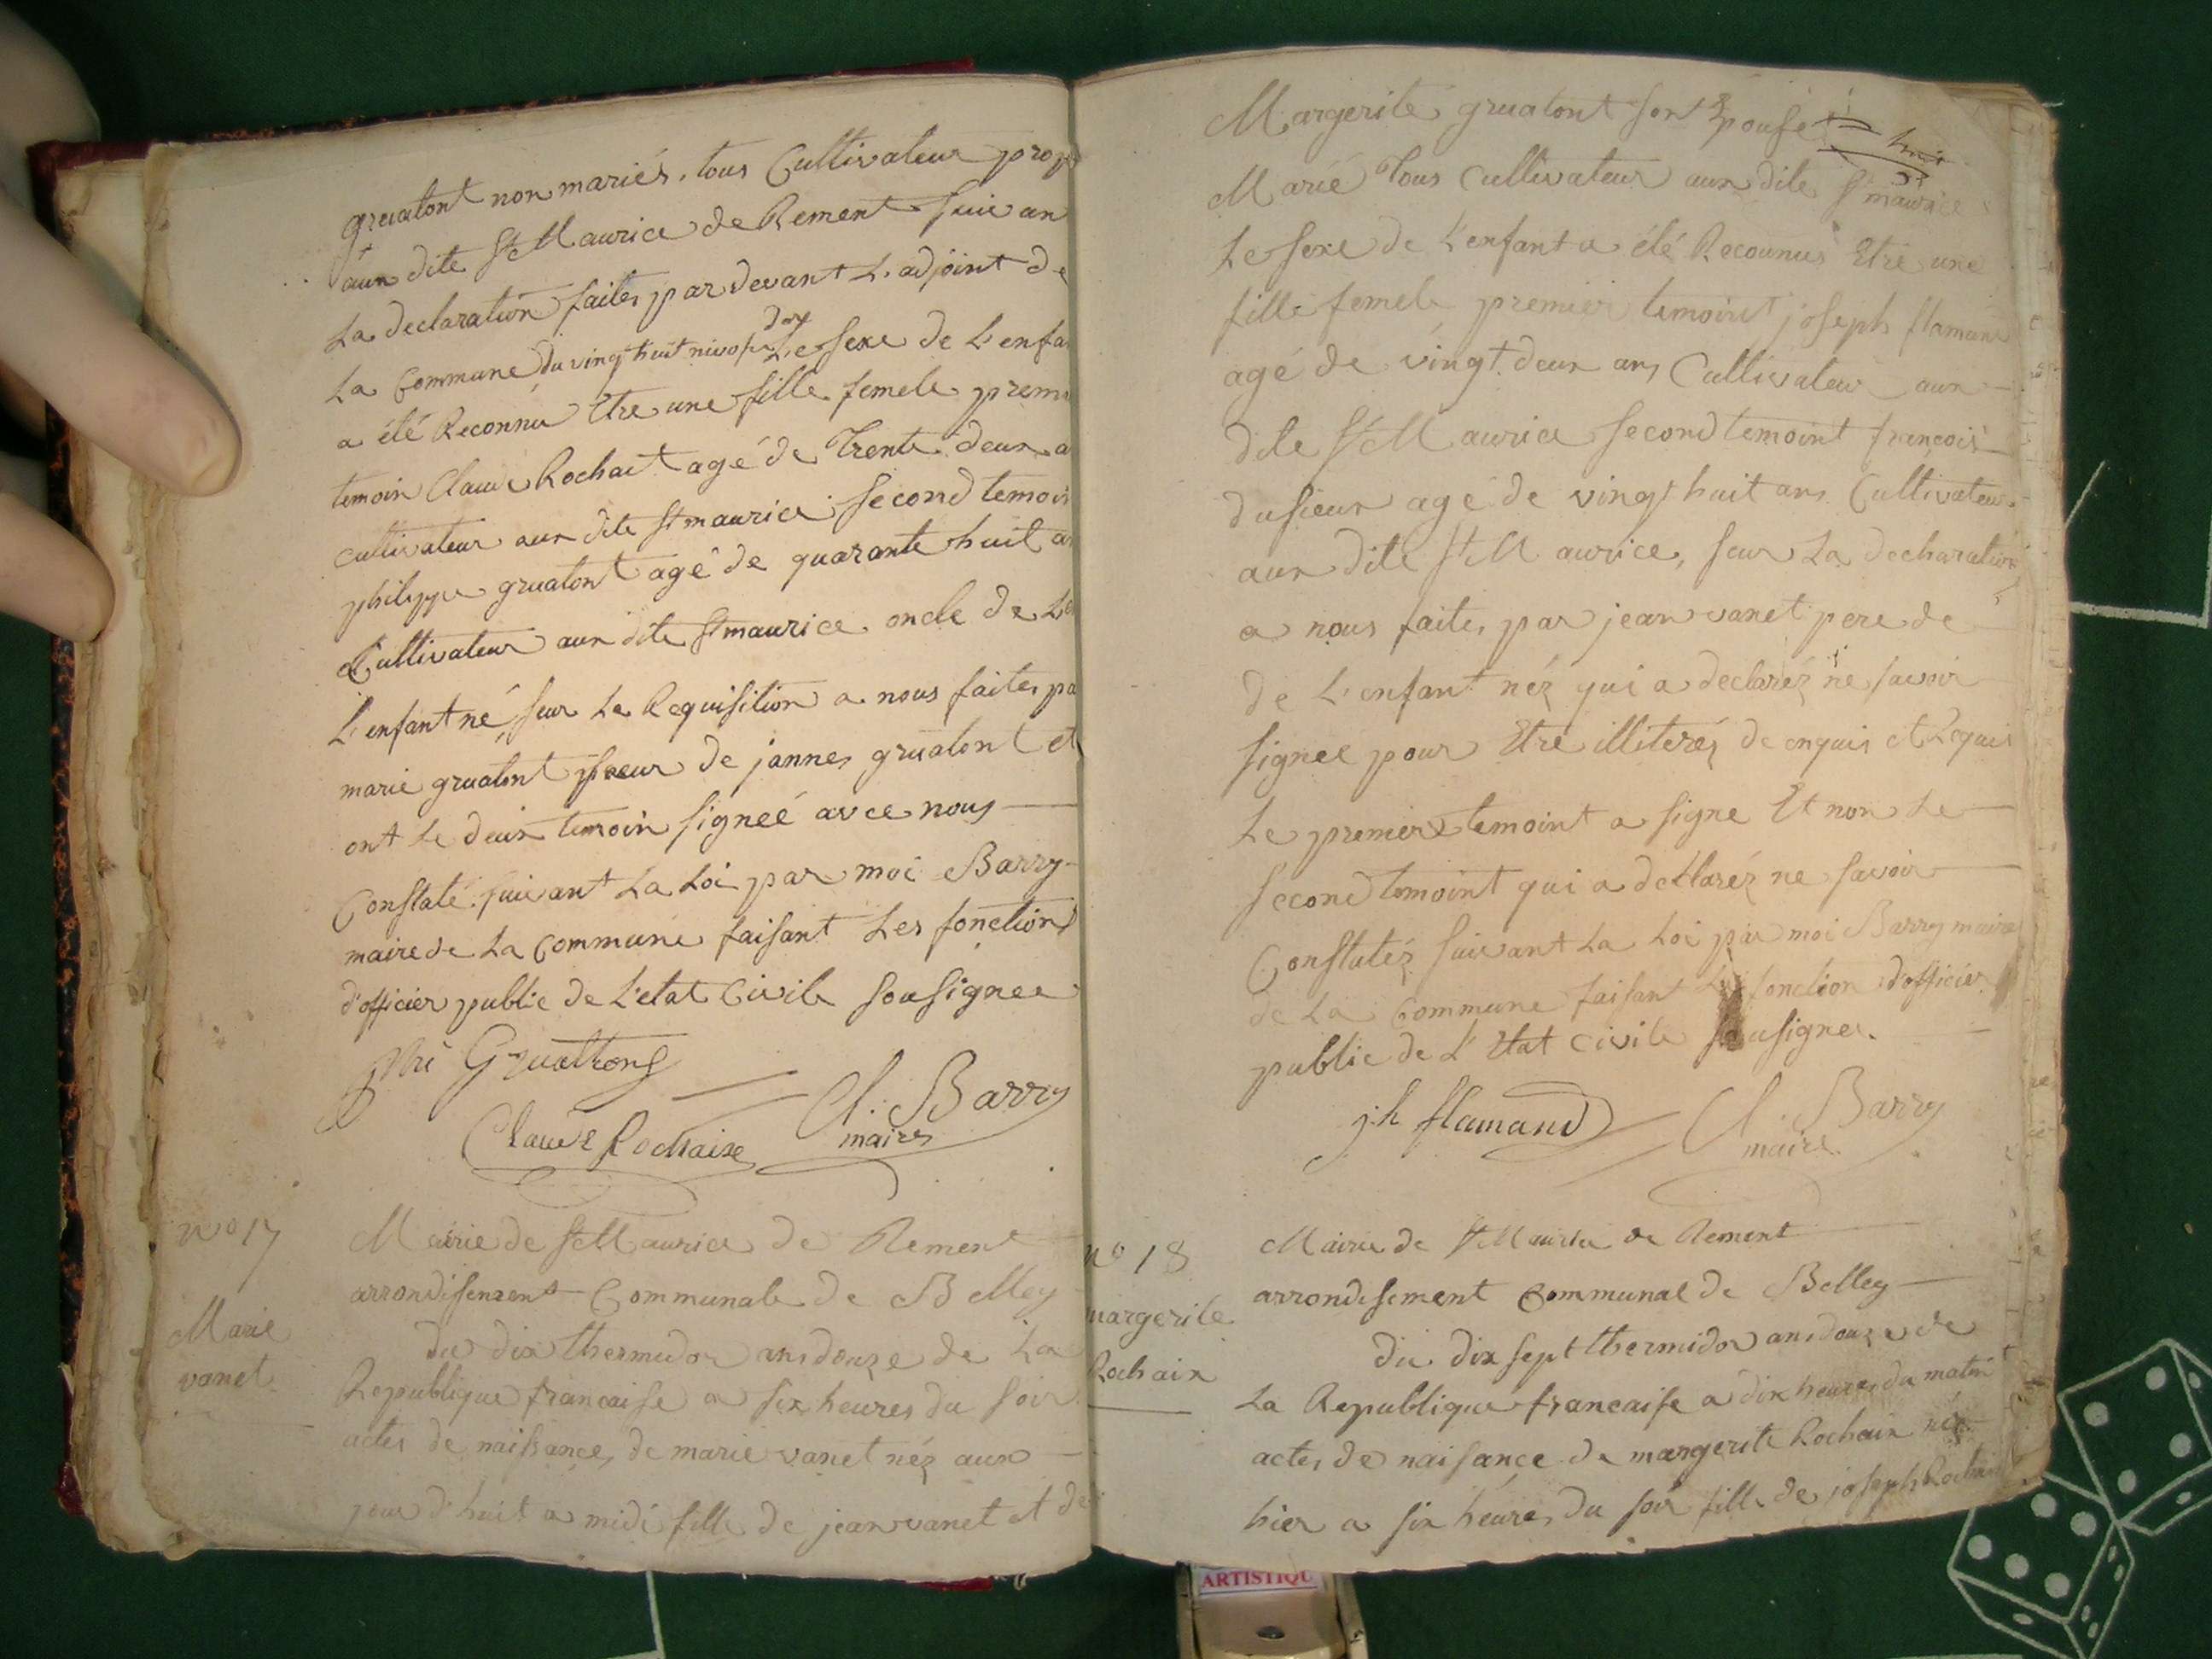 gruatont non mariés, tous Cultivateur prop
aux dite St Maurice de Rement suivan
La declaration faites par devant L'adjoint de
La Commune du vingt huit nivose Le sexe de L'enfa
a été Reconnu Etre une fille femele premi
temoin Claude Rochait agé de Trente deux a
cultivateur aux dite St maurice second temoin
philippe gruatont agé de quarante huit a
Cultivateur aux dite St maurice oncle de
L'enfant né, sur Le Requisition a nous faites pa
marie gruatont soeur de jannes gruatont et
ont Le deux temoin signeé avec nous
Constaté suivant La Loi par moi Barry
maire de La Commune faisant Les fonction
d'officier public de L'etat Civile sousignee
phi Gruattong
Cl. Barry
maires
Claude Rochaix
n° 17
Marie
vanet
Mairie de St Maurice de Rement
arrondisement Communale de Belley
du dix thermidor ans douze de La
Republique francaise a six heures du soir
actes de naissance, de marie vanet néz aux
jour d'huit a midi fille de jean vanet et de
Margerite gruatont sont Epouse
Marié Tous Cultivateur aux dite St maurice
Le sexe de L'enfant a été Reconnus Etre une
fille femele premier temoint joseph flamand
agé de vingt deux ans Cultivateur aux
dite St Maurice second temoint francois
dusieur agé de vingt huit ans Cultivateur
aux dite St Maurice, sur La decharation
a nous faites par jean vanet pere de
de L'enfant néz qui a declaréz ne savoir
signee pour Etre illiteréz de enquis et Requis
Le premier temoint a signe Et non Le
second temoint qui a declaréz ne savoir
Constatéz suivant La Loi par moi Barry maire
de La Commune faisant Les fonction d'officier
public de L'Etat Civile sousignee.
j.h flamand
Cl. Barry
maire
n° 18
margerite
Rochaix
Mairie de St Maurice de Rement
arrondisement Communal de Belley
du dix sept thermidor ans douze de
La Republique francaise a dix heures du matin
actes de naisance de margerite Rochaix née
hier a six heures du soir fille de joseph Rochaix
ARTISTIQU